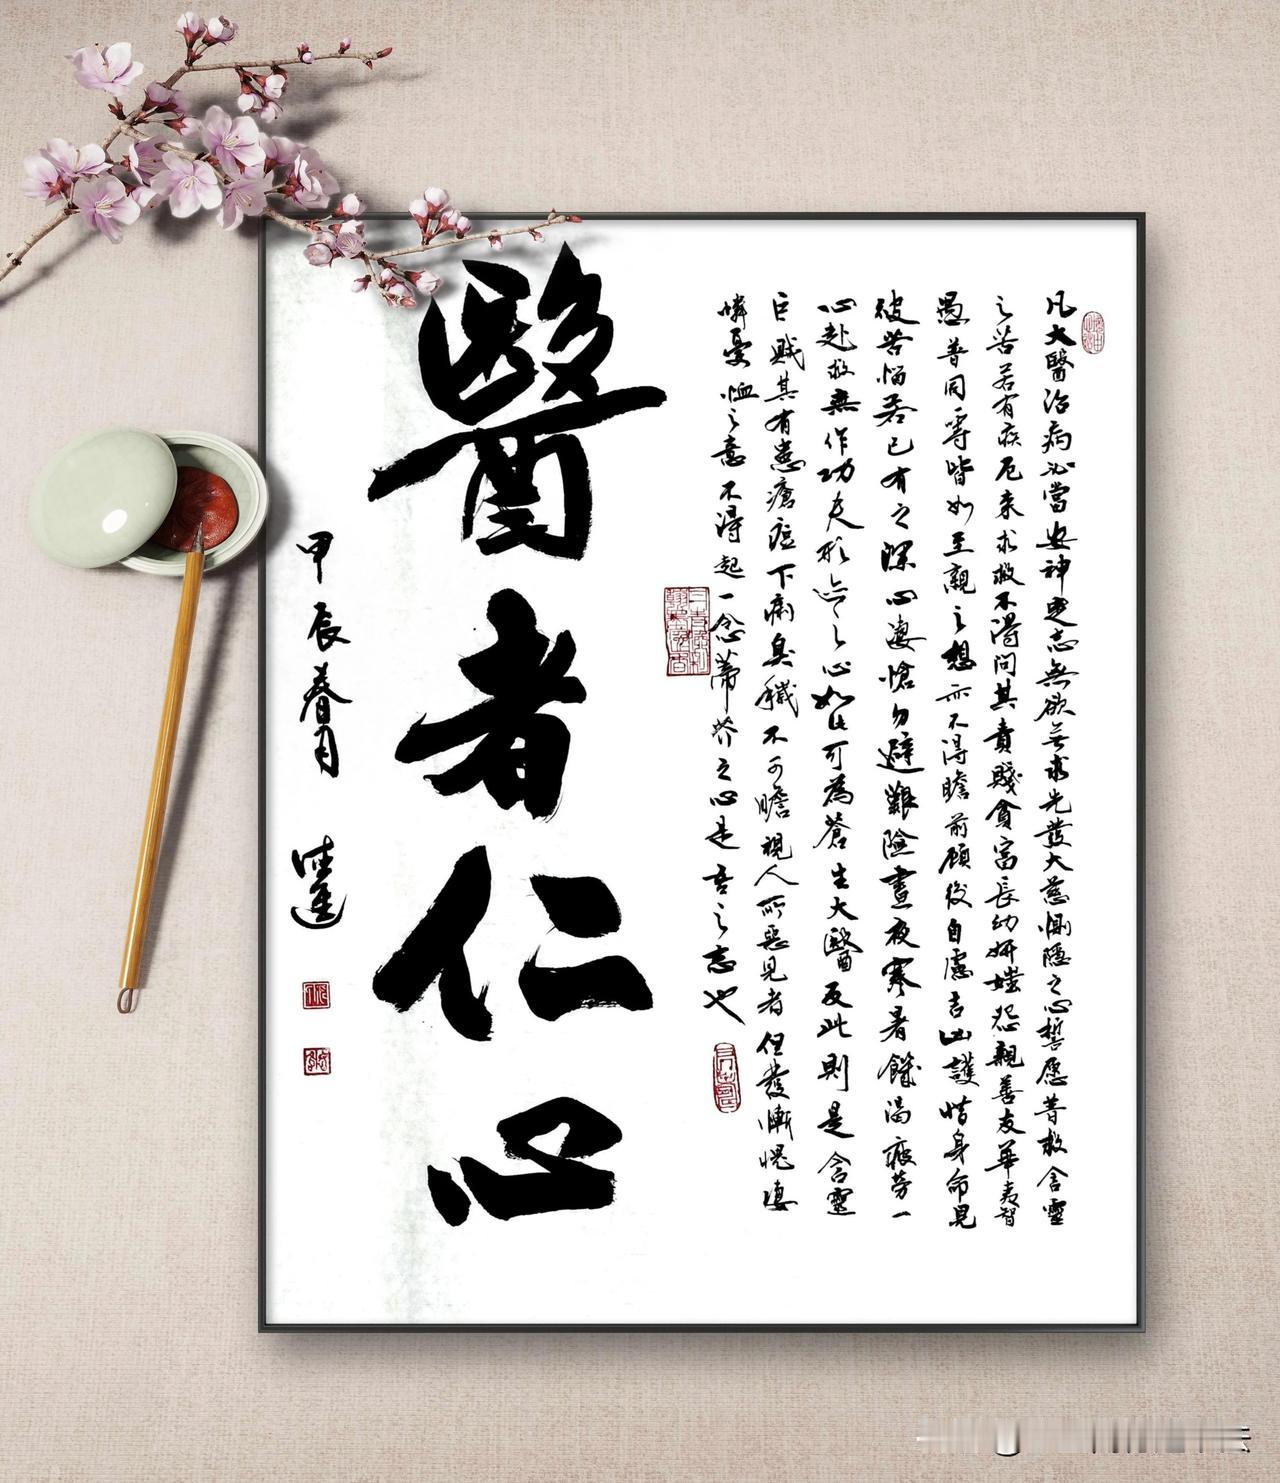 凡大醫治病必當安神定志無欲無求先發大慈惻隱之心誓愿普救含靈
之苦若有疾厄来求救不得问其贵賤貧富長幼妍媸怨親善友華夷智
愚普同一等皆如至親之想亦不得瞻前顾後自慮吉凶護惜身命見
彼苦惱若已有之深心凄愴勿避艱險晝夜寒暑饑渴疲劳一
心赴救無作功夫形迹之心如此可為蒼生大醫反此則是含靈
巨賊其有患瘡痍下痢臭穢不可瞻視人所惡見者但發慚愧凄
憐憂恤之意不得起一念蒂芥之心是吾之志也
醫者仁心
甲辰春月